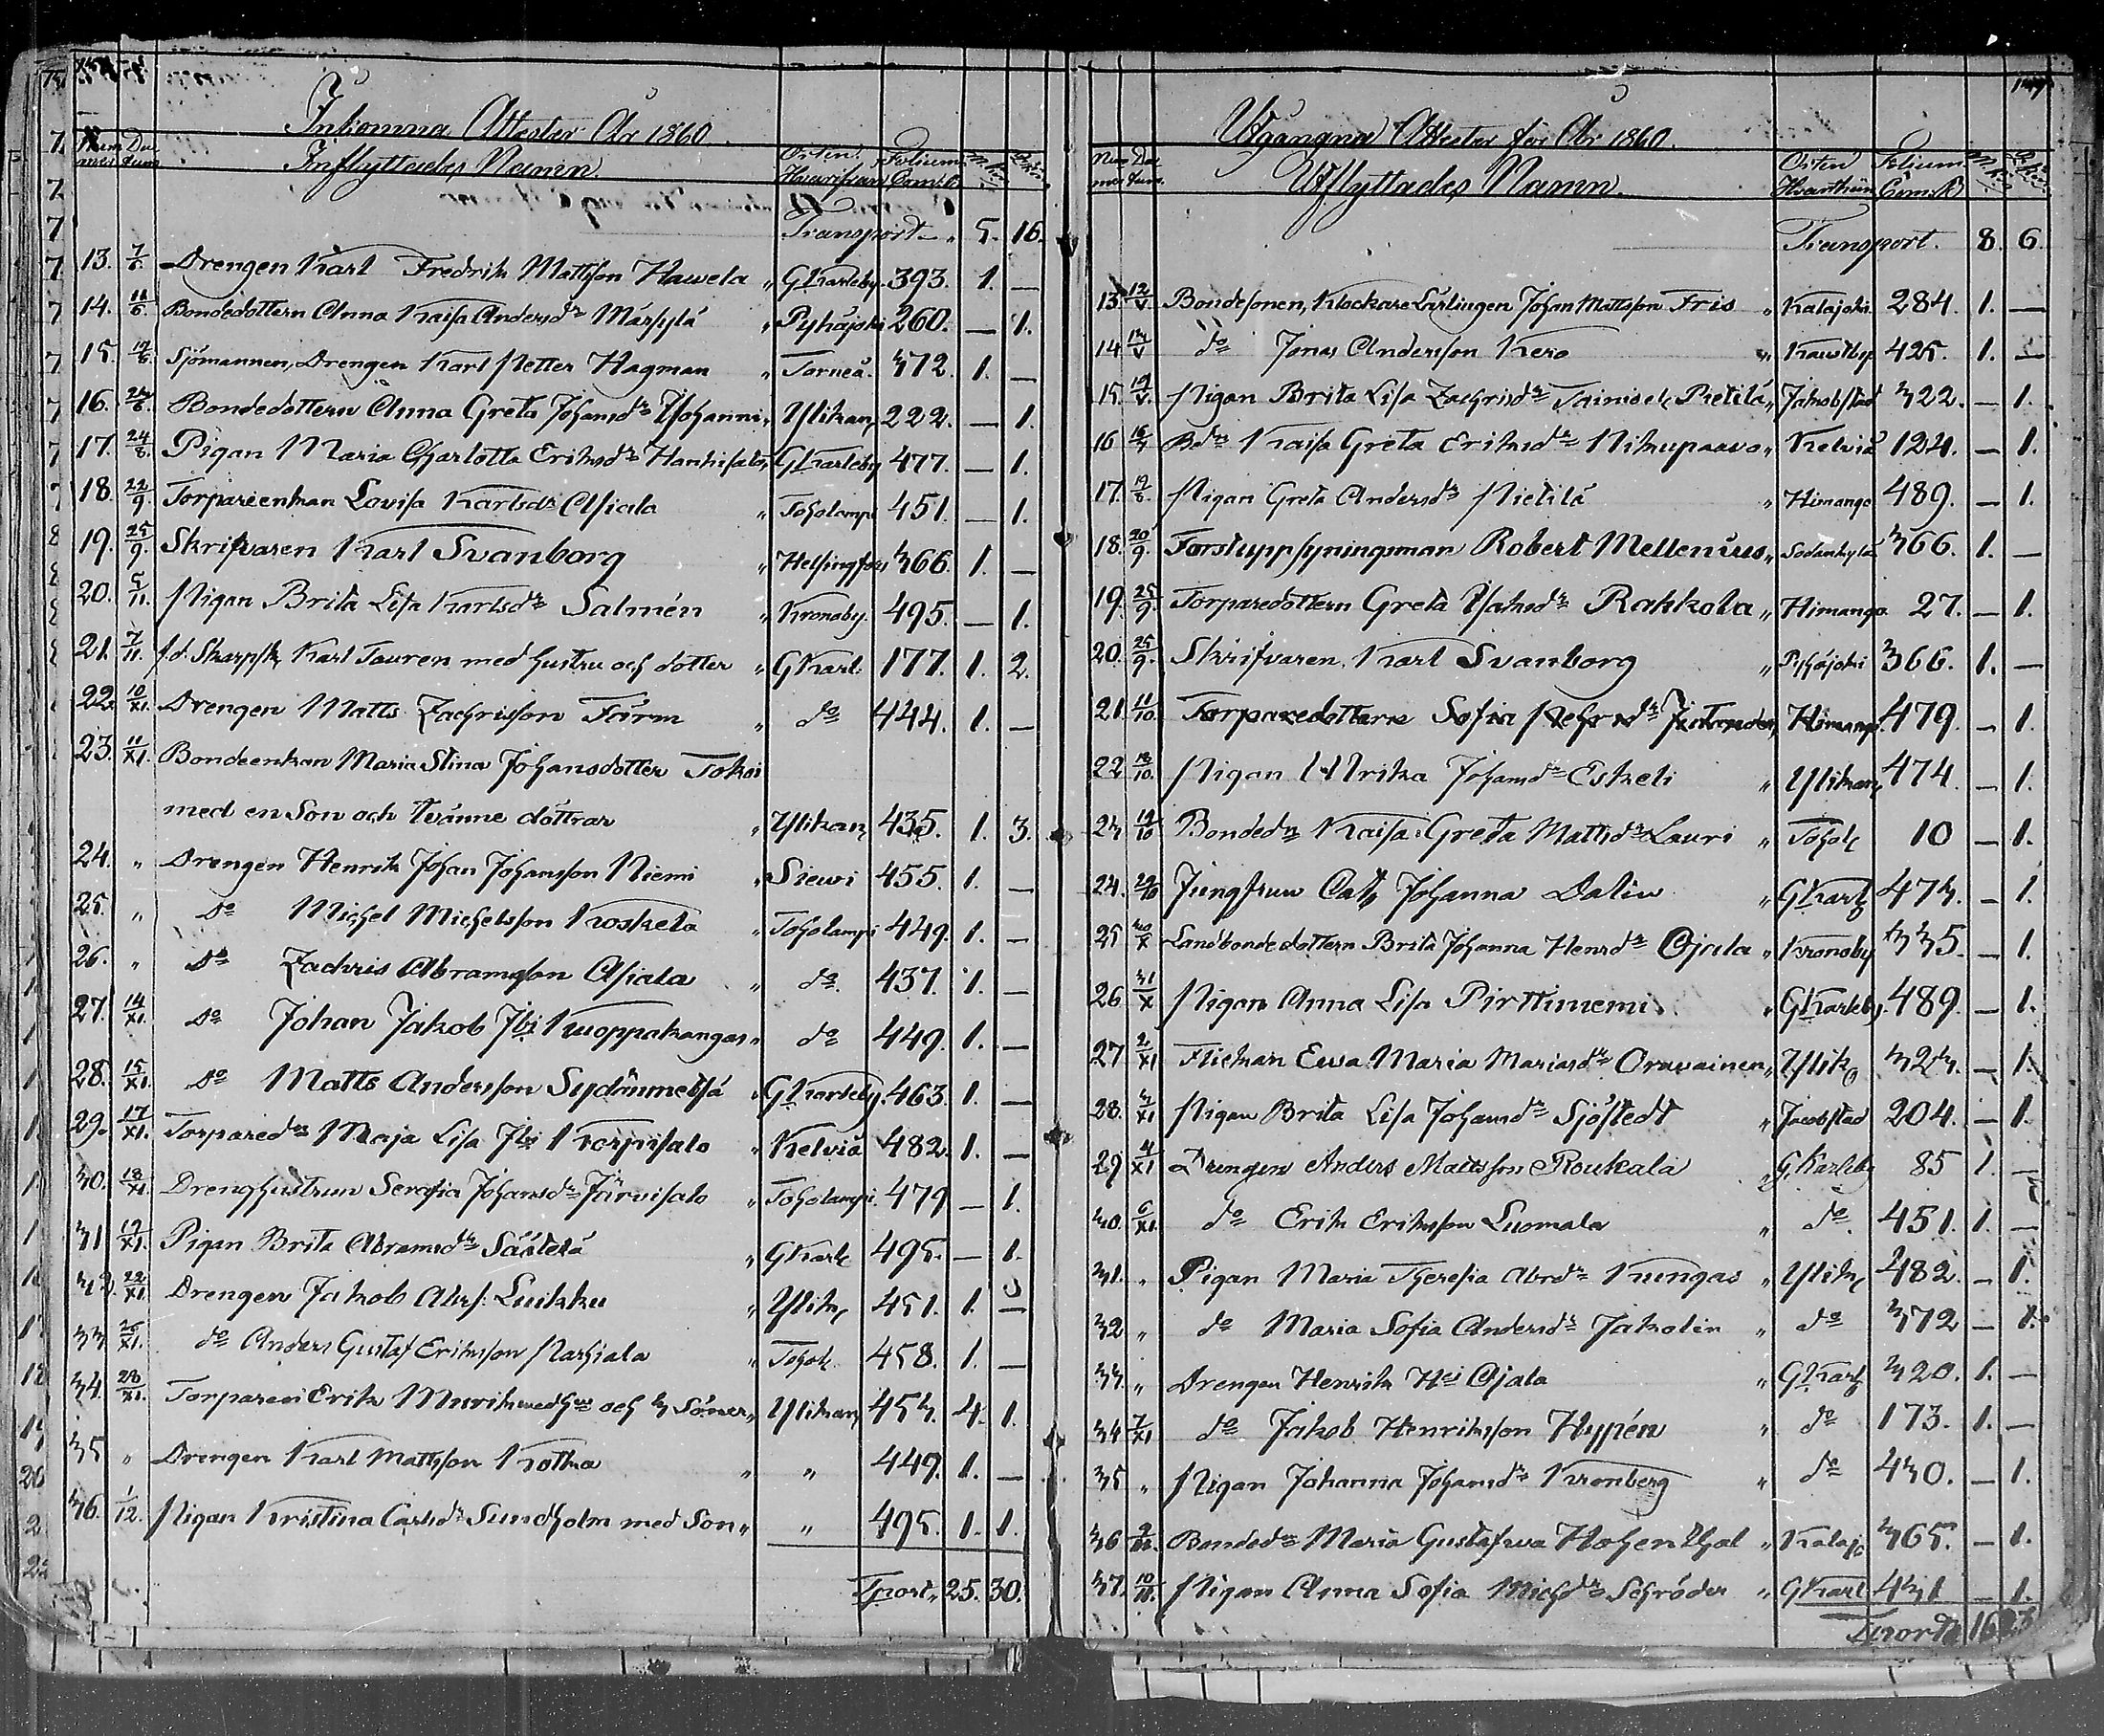 Inkomna Attester År 1860.
Num mer Da tum Inflyttades Namn. Orten Hvarifrån Folium Comb. M.kön Q.kön
Transport 5. 16.
13. 7/6. Drengen Karl Fredrik Mattsson Hawela " GKarleby 393. 1. —
14. 11/6. Bondedottern Anna Kaisa Andersdr Märsylä " Pyhäjoki 260. — 1.
15. 19/6. Sjömannen, Drengen Karl Petter Hagman " Torneå. 372. 1. —
16. Bondedottern Anna Greta Johansdr Yohanni " Ylikan, 222. — 1.
17. 24/8. Pigan Maria Charlotta Eriksdr Hankisalo, GKarleby 477. — 1.
18. 22/9. Torparienkan Lovisa Karlsdr Asiala " Toholampi 451. — 1.
19. 25/9. Skrifvaren Karl Svanborg " Helsingfors 366. 1. —
20. 5/11. Pigan Brita Lisa Karlsdr Salmén " Kronoby. 495. — 1.
21. 7/11. f.d. Skarpsk, Karl Tauren med hustru och dotter " GKarl. 177. 1. 2.
22. 10/XI. Drengen Matts Zachrisson Färm " do 444. 1. —
23. 11/XI. Bondeenkan Maria Stina Johansdotter Tokoi
med en Son och tvänne döttrar " Ylikan, 435. 1. 3.
24. " Drengen Henrik Johan Johansson Niemi " Siewi 455. 1. —
25. " Do Michel Michelsson Koskela " Toholampi 449. 1. —
26. " Do Zachris Abramsson Asiala " do. 437. 1. —
27. 14/XI. Do Johan Jakob Jbi Kuoppakangas " do 449. 1. —
28. 15/XI. Do Matts Andersson Sydänmetsä " GKarleby. 463. 1. —
29. 17/XI. Torparedr Maja Lisa Jbi Korpisalo " Kelviå 482. 1. —
30. 18/XI. Drenghustrun Serafia Johansdr Järvisalo " Toholampi. 479 — 1.
31 19/XI. Pigan Brita Abramsdr Säätelä " GKarl 495. — 1.
32. 22/XI. Drengen Jakob Abrs. Luikku " Ylik, 451. 1. —
33 26/XI. do Anders Gustaf Eriksson Parhiala " Tohol. 458. 1. —
34. 28/XI. Torparen Erik Murik med hu och 3 Söner " Ylikan, 453. 4. 1.
35 " Drengen Karl Mattsson Kotka " " 449. 1. —
36. 1/12. Pigan Kristina Carlsdr Sundholm med Son " " 495. 1. 1.
Tport. 25. 30.
Utgångna Attester för År 1860.
Num mer Da tum. Utflyttades Namn. Orten Hvarthän Folium Comb. M.kön Q.kön
Transport. 8. 6.
13 12/V. Bondesonen, Klockare Lärlingen Johan Mattsson Fris " Kalajoki 284. 1. —
14 13/V do Jonas Andersson Kero " Kaustby 425. 1. —
15. 19/V. Pigan Brita Lisa Zachrisdr Pietilä " Jakobstad 322. — 1.
16 Bdr Kaisa Greta Eriksdr Pitkupaavo " Kelviå 124. — 1.
17. 19/6. Pigan Greta Andersdr Pietilä " Himango 489. — 1.
18. 20/9. Forstuppsyningsman Robert Mellenius " Sodankylä 366. 1. —
19. 25/9. Torparedottern Greta Isaksdr Rahkola " Himango 27. — 1.
20. 25/9. Skrifvaren Karl Svanborg " Pyhäjoki 366. 1. —
21. 11/10. Torparedottern Sofia " Himango. 479. — 1.
22 18/10. Pigan Ulrika Johansdr Eskeli " Ylikan, 474 — 1.
23 19/10 Bondedr Kaisa Greta Mattsdr Lauri " Toholl 10 — 1.
24. 29/10 Jungfrun Cath Johanna Dalin " GKarl 473. — 1.
25 30/X Landbondedottern Brita Johanna Henrdr Ojala " Kronoby 335. — 1.
26 31/X Pigan Anna Lisa Pirttiniemi. " GKarleby. 489. — 1.
27 2/XI Flickan Ewa Maria Mariasdr Oravainen " Ylik 323. — 1.
28. 3/XI Pigan Brita Lisa Johansdr Sjöstedt " Jacobstad 204. — 1.
29 4/XI Drengen Anders Mattsson Roukala " G. Karleby 85 1. —
30. 6/XI. do Erik Eriksson Luomala " do. 451. 1. —
31. " Pigan Maria Theresia Abrdr Kungas " Ylik, 482. — 1.
32 " do Maria Sofia Andersdr Jakolin " do 372 — 1.
33 " Drengen Henrik Hri Ojala " GKarl 320. 1. —
34 7/XI do Jakob Henriksson Hypén " do 173. 1. —
35 " Pigan Johanna Johansdr Kronberg " do 430. — 1.
36 Bondedr Maria Gustafwa Hohenthal " Kalajo 365. — 1.
37. Pigan Anna Sofia Michdr Schröder " GKarl 431 — 1.
Tport 16.